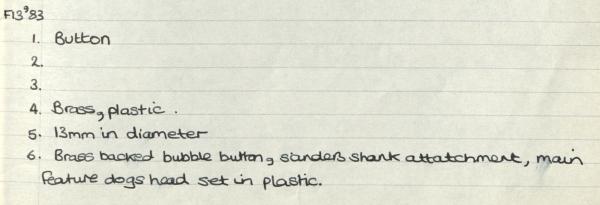 F13⁹83
1. Button
2.
3.
4. Brass, plastic.
5. 13mm in diameter
6. Brass backed bubble button, sanders shank attatchment, main
feature dogs head set in plastic.